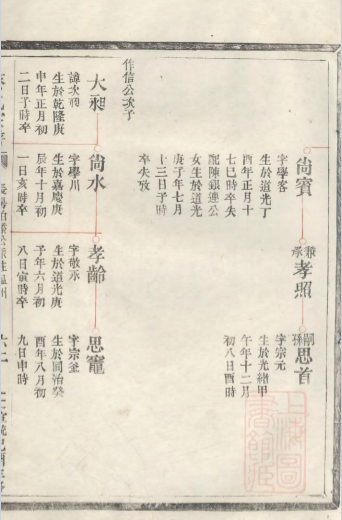 尚賓
字學客
生於道光丁
酉年正月十
七巳時卒失
配陳銀連公
女生於道光
庚子年七月
十三日子時
卒失攷
兼承
孝照
嗣孫
思首
字宗元
生於光緒甲
午年十二月
初八日酉時
作信公次子
大昶
諱次昶
生於乾隆庚
申年正月初
二日子時卒
尚水
字學川
生於嘉慶庚
辰年十月初
一日亥時卒
孝齡
字敬承
生於道光庚
子年六月初
八日寅時卒
思寵
字宗奎
生於同治癸
酉年八月初
九日申時
六二
上海圖
書館藏